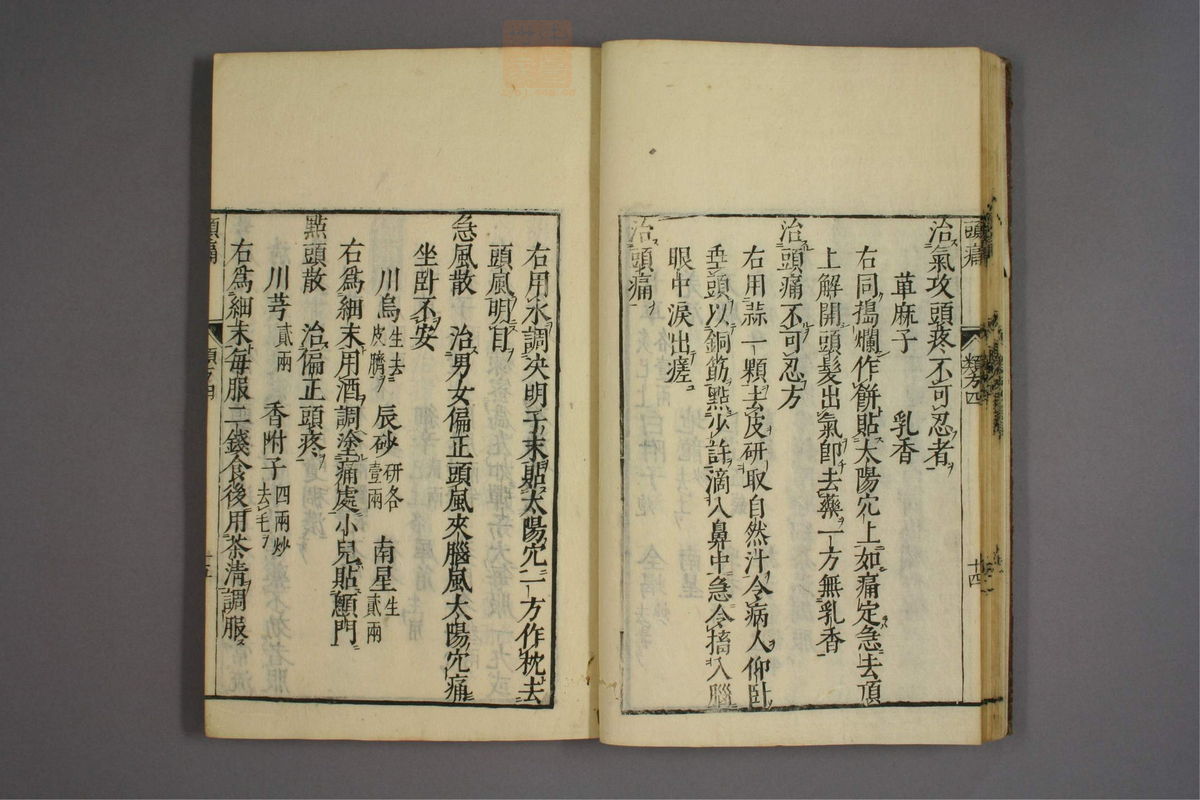 頭痛 類方四 十四
治氣攻頭疼不可忍者
萆麻子 乳香
右同搗爛作餅貼太陽穴上如痛定急去頂
上解開頭髮出氣即去藥一方無乳香
治頭痛不可忍方
右用蒜一顆去皮研取自然汁令病人仰臥
垂頭以銅筯點少許滴入鼻中急令搐入腦
眼中淚出瘥
治頭痛
右用水調决明子末貼太陽穴一方作枕去
頭風明耳
急風散 治男女偏正頭風來腦風太陽穴痛
坐臥不安
川烏生去皮臍 辰砂研各壹兩 南星生貳兩
右爲細末用酒調塗痛處小兒貼顖門
點頭散 治偏正頭疼
川芎貳兩 香附子四兩炒去毛
右爲細末每服二錢食後用茶清調服
頭痛 類方四 十五